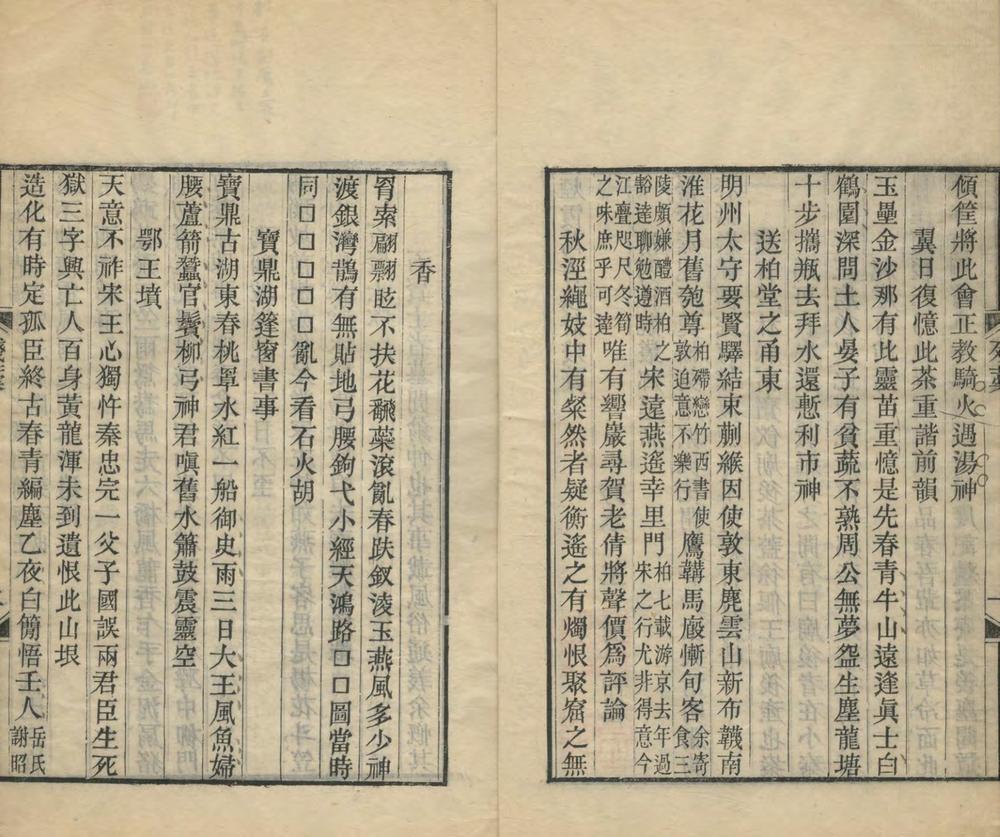 傾筐將此會正教騎火過湯神
翼日復憶此茶重諧前韻
玉壘金沙那有此靈苗重憶是先春青牛山遠逢眞士白
鶴園深問土人晏子有貧蔬不熟周公無夢盌生塵龍塘
十步攜瓶去拜水還慙利市神
送柏堂之甬東
明州太守要賢驛結束蒯緱因使敦東麂雲山新布韈南
淮花月舊匏尊柏殢戀竹西書使敦迫意不樂行鷹韝馬廄慚旬客余寄食三
陵頗嫌醴酒柏之豁達聊勉遵時宋遠燕遙幸里門柏七載游京去年過宋之行尤非得意今
江亹咫尺冬筍之味庶乎可達唯有響巖尋賀老倩將聲價爲評論
秋涇繩妓中有粲然者疑衡遙之有燭恨聚窟之無
香
罥索翩翻眩不扶花飜藥滾亂春趺釵淩玉燕風多少神
渡銀灣鵲有無貼地弓腰鉤弋小經天鴻路□□圖當時
同□□□□□亂今看石火胡
寶鼎湖篷窗書事
寶鼎古湖東春桃罩水紅一船御史雨三日大王風魚婦
腰蘆箭蠶官鬢柳弓神君嗔舊水簫鼓震靈空
鄂王墳
天意不祚宋王心獨忤秦忠完一父子國誤兩君臣生死
獄三字興亡人百身黃龍渾未到遺恨此山垠
造化有時定孤臣終古春青編塵乙夜白簡悟壬人岳氏謝昭